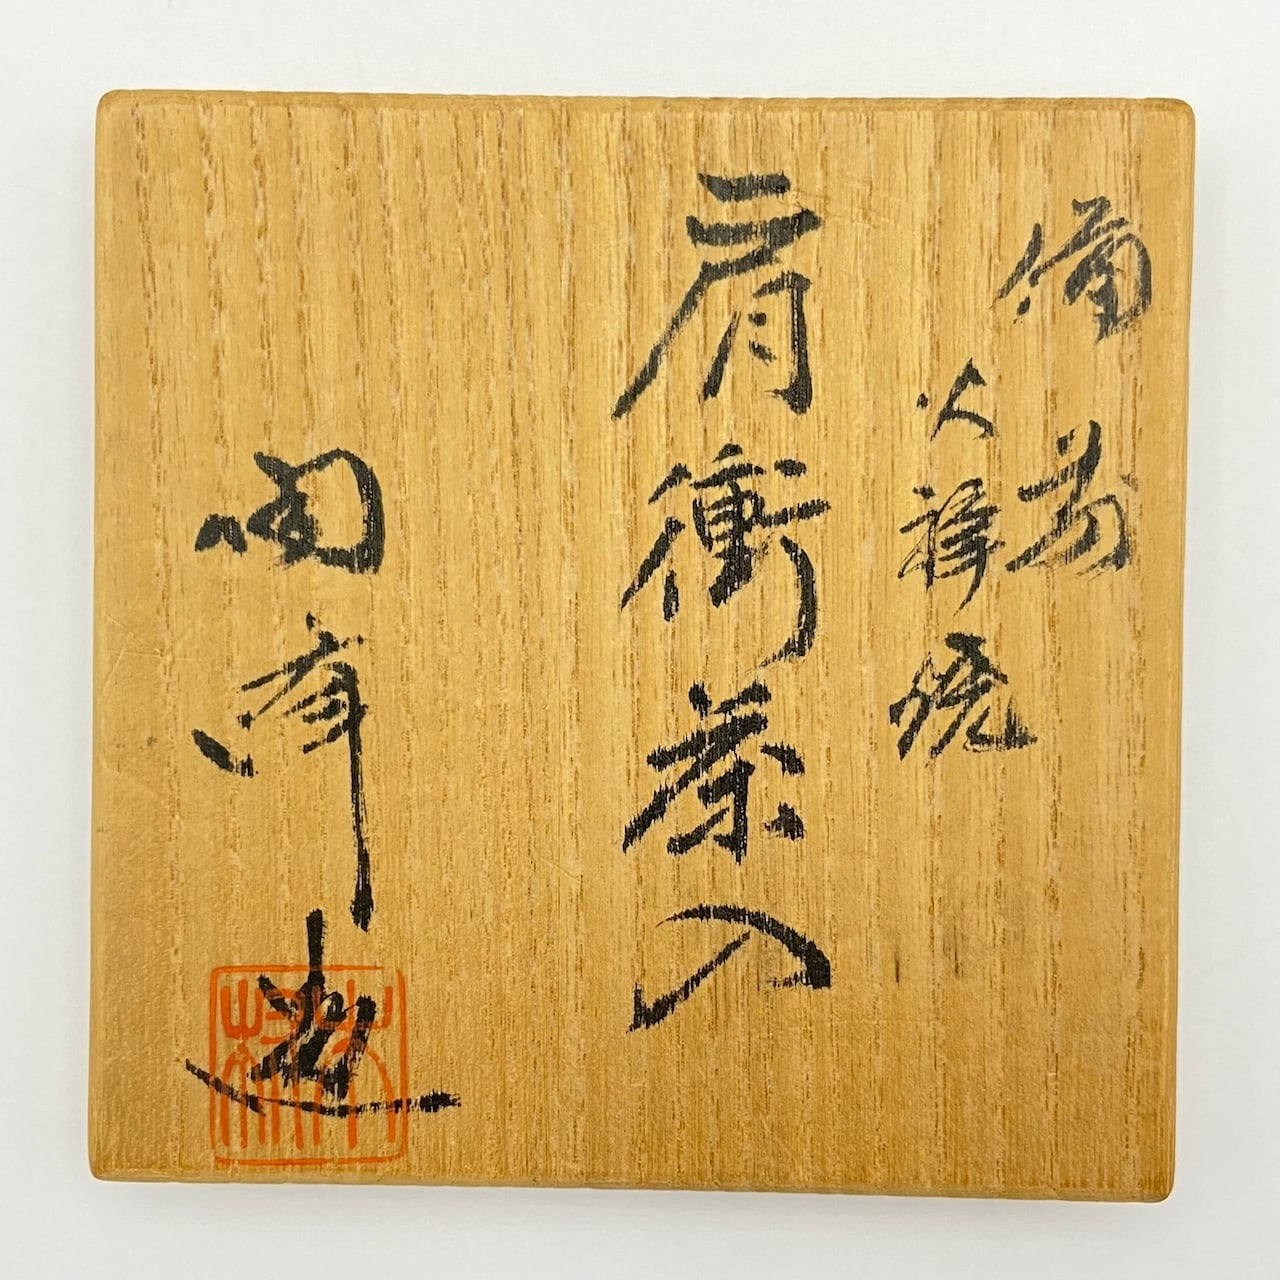 備前
火襷焼
肩衝茶入
陶岸造